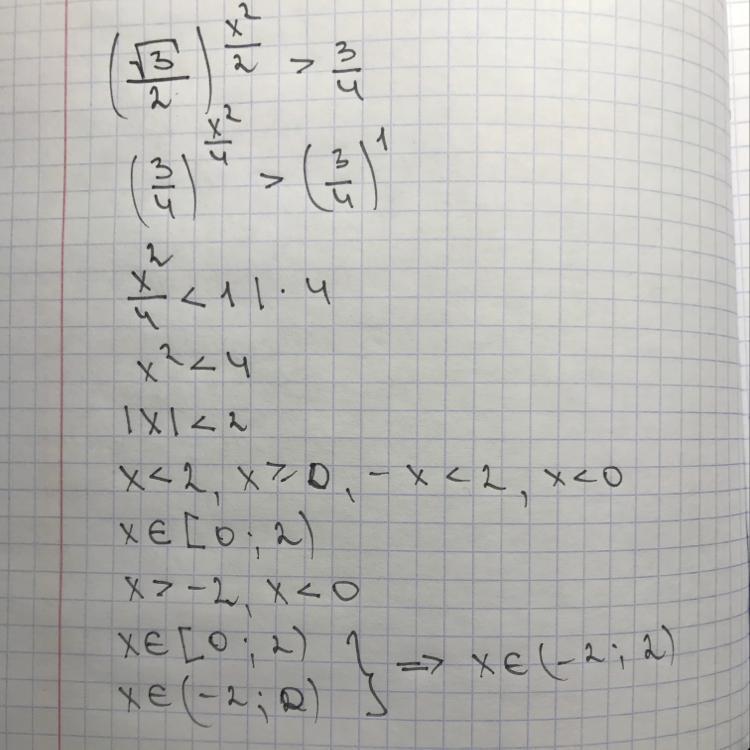 (√3/2)^(x²/2) > 3/4
(3/4)^(x²/4) > (3/4)^1
x²/4 < 1 | · 4
x² < 4
|x| < 2
x < 2, x ≥ 0, - x < 2, x < 0
x ∈ [0; 2)
x > -2, x < 0
x ∈ [0; 2) } ⇒ x ∈ (-2; 2)
x ∈ (-2; 0)